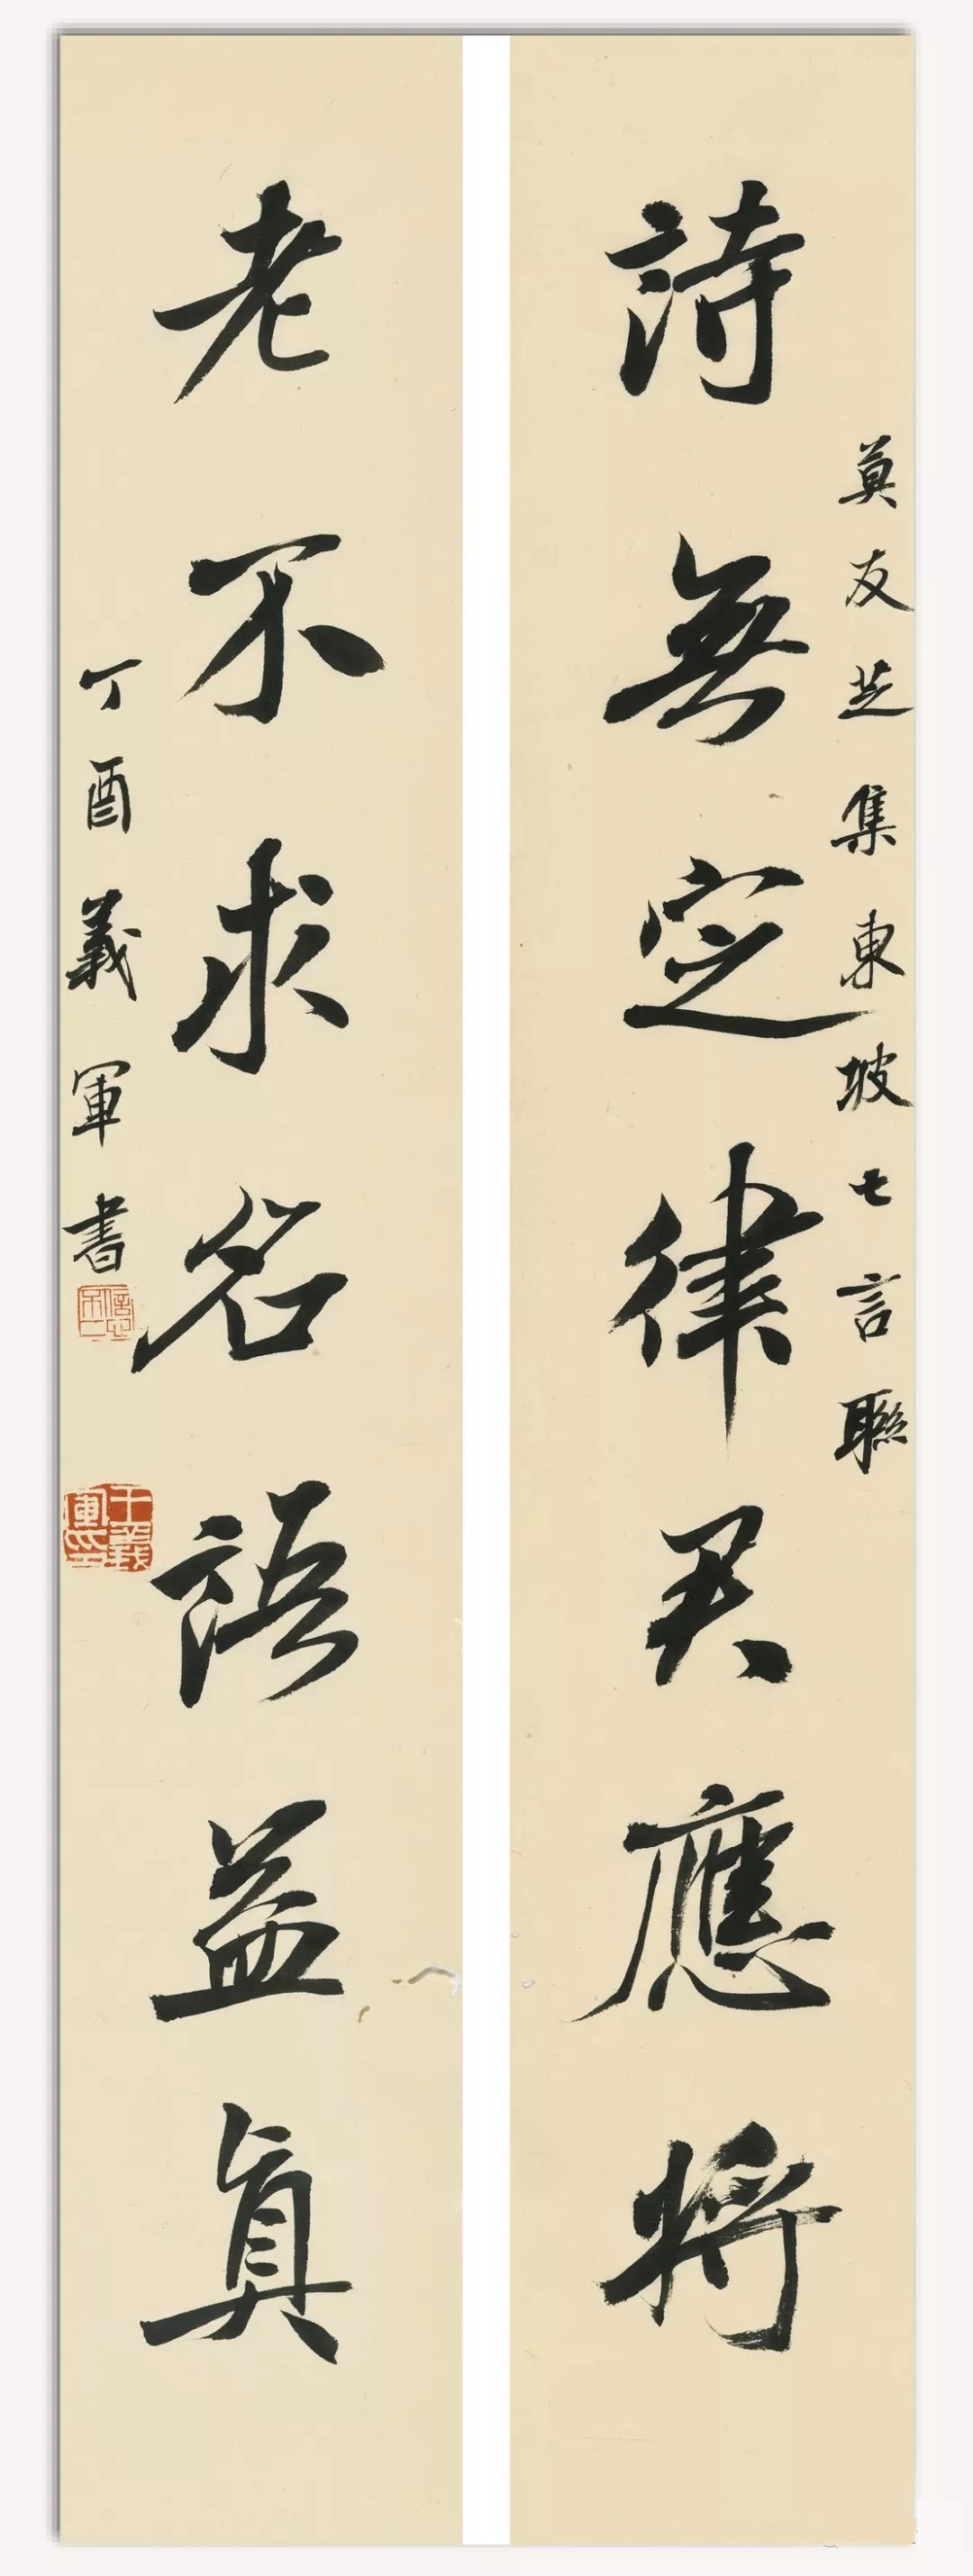 莫友芝集東坡七言聯
詩無定律君應將
老不求名語益真
丁酉義軍書
王義軍印